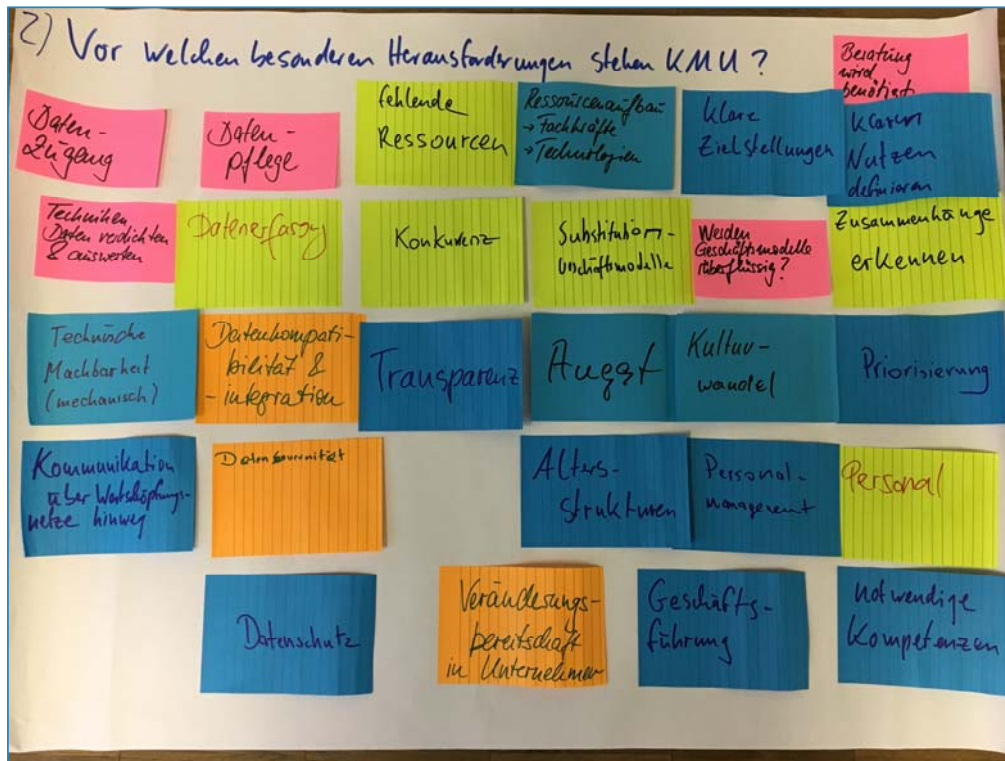 2) Vor welchen besonderen Herausforderungen stehen KMU?
Beratung
wird
benötigt
Daten-
Zugang
Daten-
pflege
fehlende
Ressourcen
Ressourcenaufbau
→ Fachkräfte
→ Technologien
Klare
Zielstellungen
Klaren
Nutzen
definieren
Techniken
Daten verdichten
& auswerten
Datenerfassung
Konkurrenz
Substitution-
Werden
Geschäftsmodelle
überflüssig?
Zusammenhänge
erkennen
Technische
Machbarkeit
(mechanisch)
Datenkompati-
bilität &
-integration
Transparenz
Angst
Kultur-
wandel
Priorisierung
Kommunikation
über Wertschöpfungs-
netze hinweg
Datensouveränität
Alters-
strukturen
Personal-
management
Personal
Datenschutz
Veränderungs-
bereitschaft
in Unternehmen
Geschäfts-
führung
notwendige
Kompetenzen